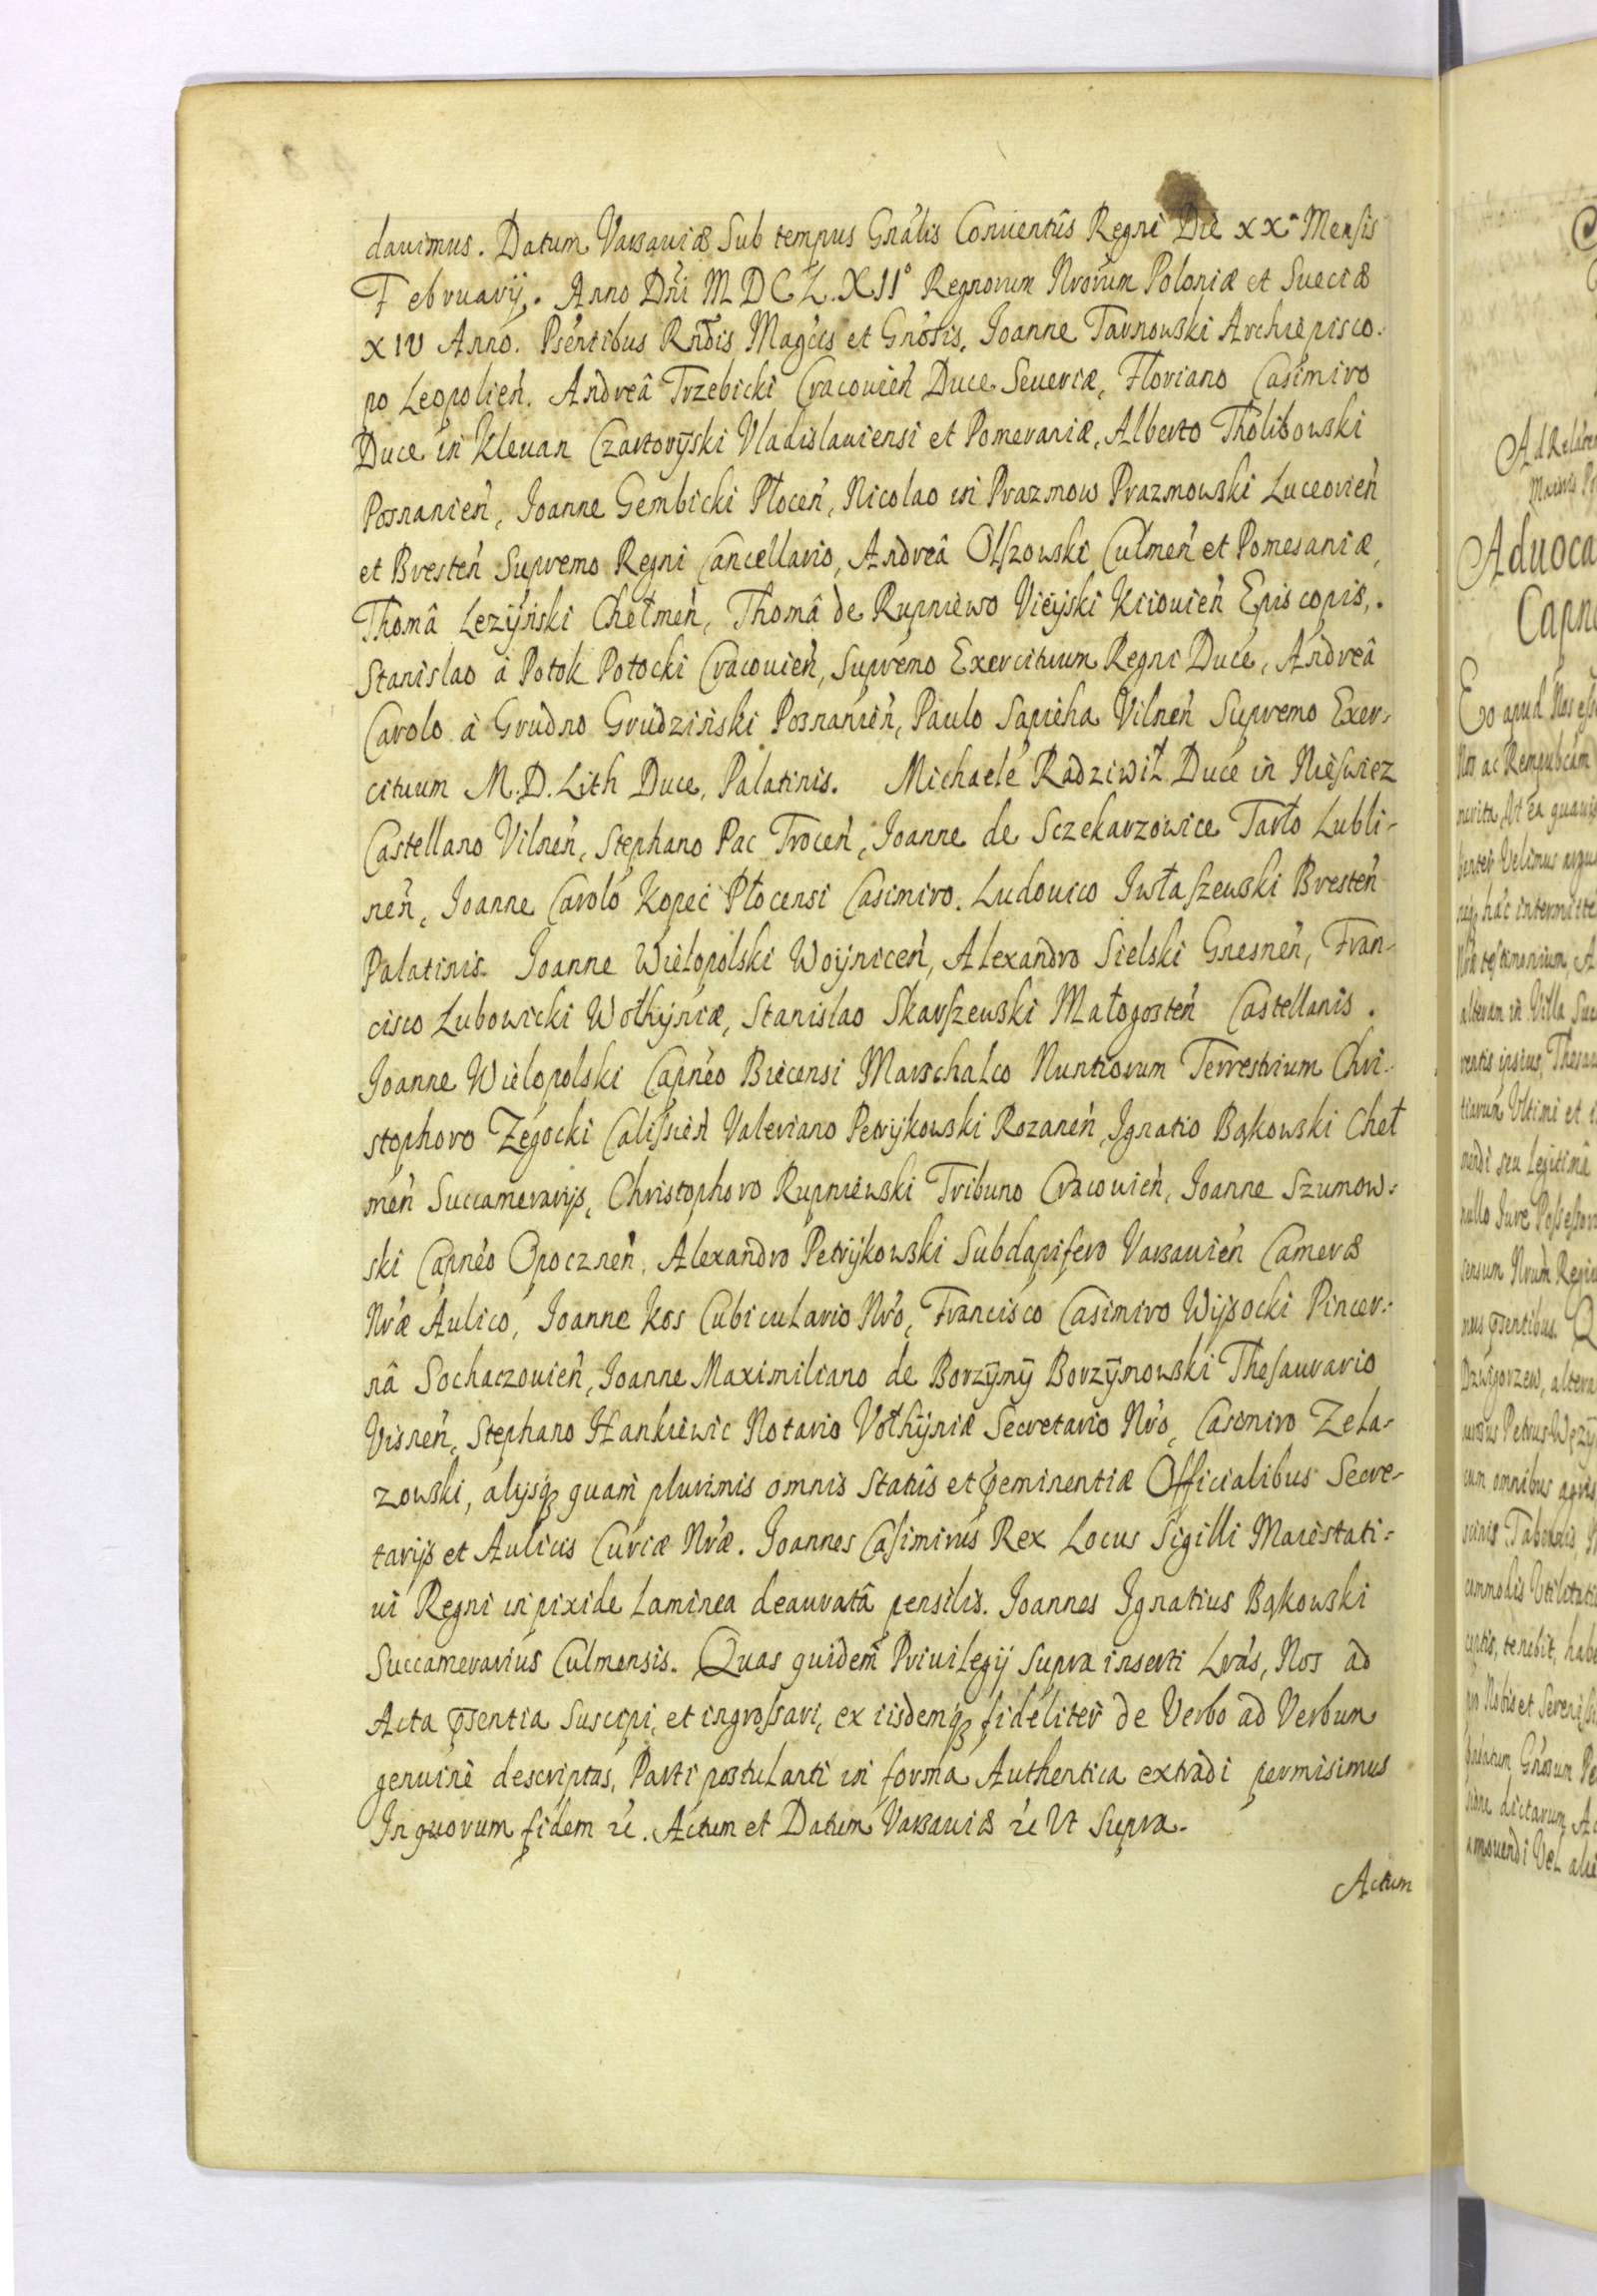 dauimus. Datum Varsauiæ Sub tempus Gnãlis Conuentûs Regni Die XXa Mensis
Februarÿ. Anno Dni MDCLXII° Regnorum Nrorum Poloniæ et Sueciæ
XIV Anno. Psentibus Rndis Magcis et Gnosis, Joanne Tarnowski Archiepisco-
po Leopolien. Andreâ Trzebicki Cracouien Duce Seueriæ, Floriano Casimiro
Duce in Kleuan Czartoryski Vladislauiensi et Pomeraniæ, Alberto Tholibowski
Posnanien, Joanne Gembicki Płocen, Nicolao in Prazmow Prazmowski Luceorien
et Bresten Supremo Regni Cancellario, Andreâ Olszowski Culmen et Pomesaniæ,
Thomâ Lezÿnski Chełmen, Thomâ de Rupniewo Vieÿski Kiiouien Episcopis,.
Stanislao à Potok Potocki Cracouien, Supremo Exercituum Regni Duce, Andreâ
Carolo à Grudno Grudziński Posnanien, Paulo Sapieha Vilnen Supremo Exer-
cituum M.D.Lith Duce, Palatinis. Michaele Radziwił Duce in Nieswiez
Castellano Vilnen, Stephano Pac Trocen, Joanne de Sczekarzowice Tarło Lubli-
nen, Joanne Carolo Kopeć Płocensi Casimiro. Ludouico Jwłaszewski Bresten
Palatinis. Joanne Wielopolski Woÿnicen, Alexandro Sielski Gnesnen, Fran-
cisco Lubowicki Wołhÿniæ, Stanislao Skarszewski Małogosten Castellanis.
Joanne Wielopolski Capneo Biecensi Marschalco Nuntiorum Terrestrium Chri-
stophoro Zegocki Calissien Valeriano Petrÿkowski Rozanen, Jgnatio Bąkowski Cheł
men Succamerarijs, Christophoro Rupniewski Tribuno Cracouien, Joanne Szumow-
ski Capneo Opocznen, Alexandro Petrÿkowski Subdapifero Varsauien Cameræ
Nræ Aulico, Joanne Kos Cubiculario Nro, Francisco Casimiro Wÿsocki Pincer-
nâ Sochaczouien, Joanne Maximiliano de Borzÿmÿ Borzÿmowski Thesaurario
Visnen, Stephano Hankiewic Notario Vołhÿniæ Secretario Nro, Casimiro Zela-
zowski, alijsq quam plurimis omnis Statûs et Peminentiæ Officialibus Secre-
tarijs et Aulicis Curiæ Nræ. Joannes Casimirus Rex Locus Sigilli Maiestati-
ui Regni in pixide Laminea deauratâ pensilis. Joannes Jgnatius Bąkowski
Succamerarius Culmensis. Quas quidem Priuilegij Supra inserti Lras, Nos ad
Acta psentia Suscipi, et ingrossari, ex iisdemq fideliter de Verbo ad Verbum
genuine descriptas, Parti postulanti in forma Authentica extradi permisimus
Jn quorum fidem &c. Actum et Datum Varsauiæ &c Vt Supra.
Actum
Aduoca
Eo apud Nos